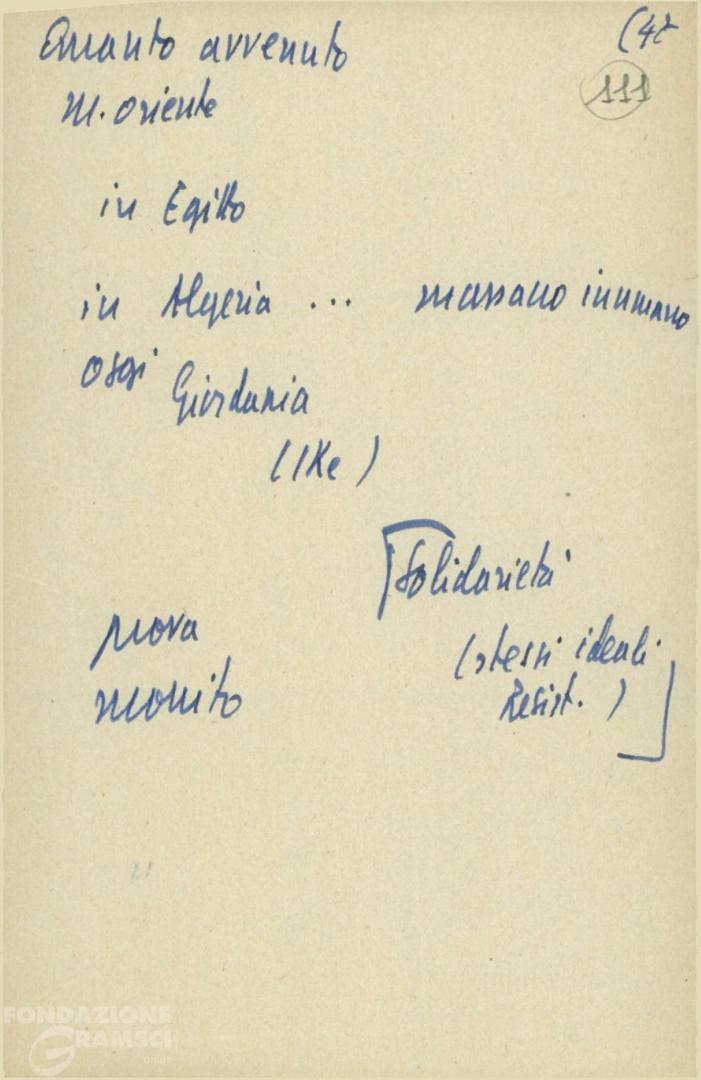 Quanto avvenuto
M. oriente
(42
111
in Egitto
in Algeria ... massacro inumano
oggi Giordania
(Ike)
[Solidarietà
(stessi ideali
Resist.)]
prova
monito
FONDAZIONE
GRAMSCI